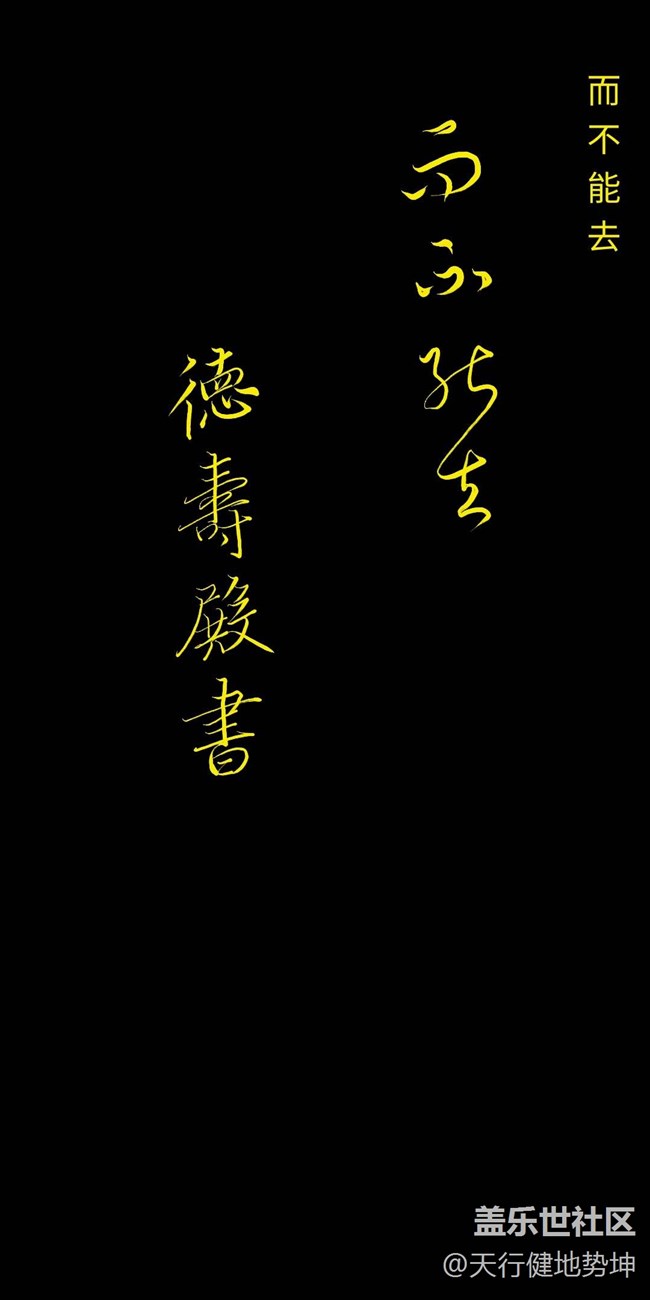 而不能去
而不能去
德壽殿書
盖乐世社区
@天行健地势坤